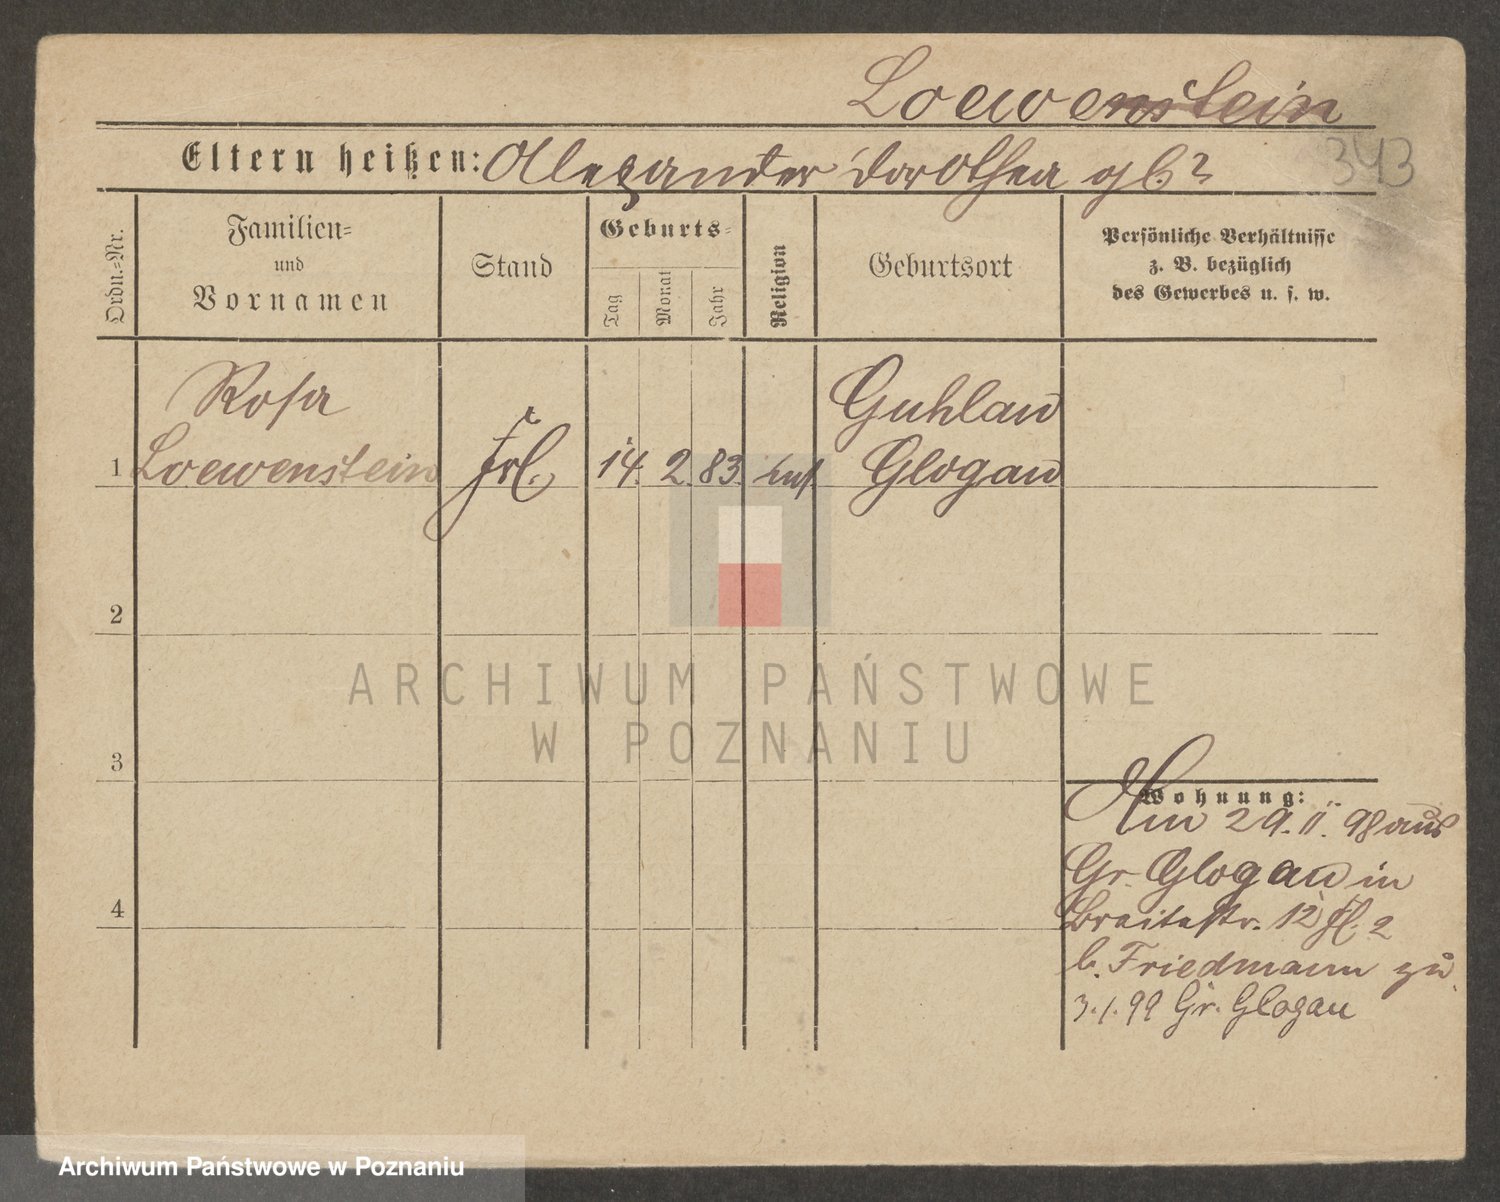 Loewenstein
343
Eltern heißen: Alexander Dorothea gb?
Ordn.-Nr.
Familien-
und
Vornamen
Stand
Geburts-
Tag
Monat
Jahr
Religion
Geburtsort
Persönliche Verhältnisse
z. B. bezüglich
des Gewerbes u. s. w.
Rosa
Guhlau
1 Loewenstein Frl. 14. 2. 83. Glogau
2
ARCHIWUM PAŃSTWOWE
W POZNANIU
3
Wohnung:
Am 29. 11. 98 aus
Gr. Glogau in
4
Breitestr. 12 Fl. 2
b. Friedmann zu
3.1.99 Gr. Glogau
Archiwum Państwowe w Poznaniu